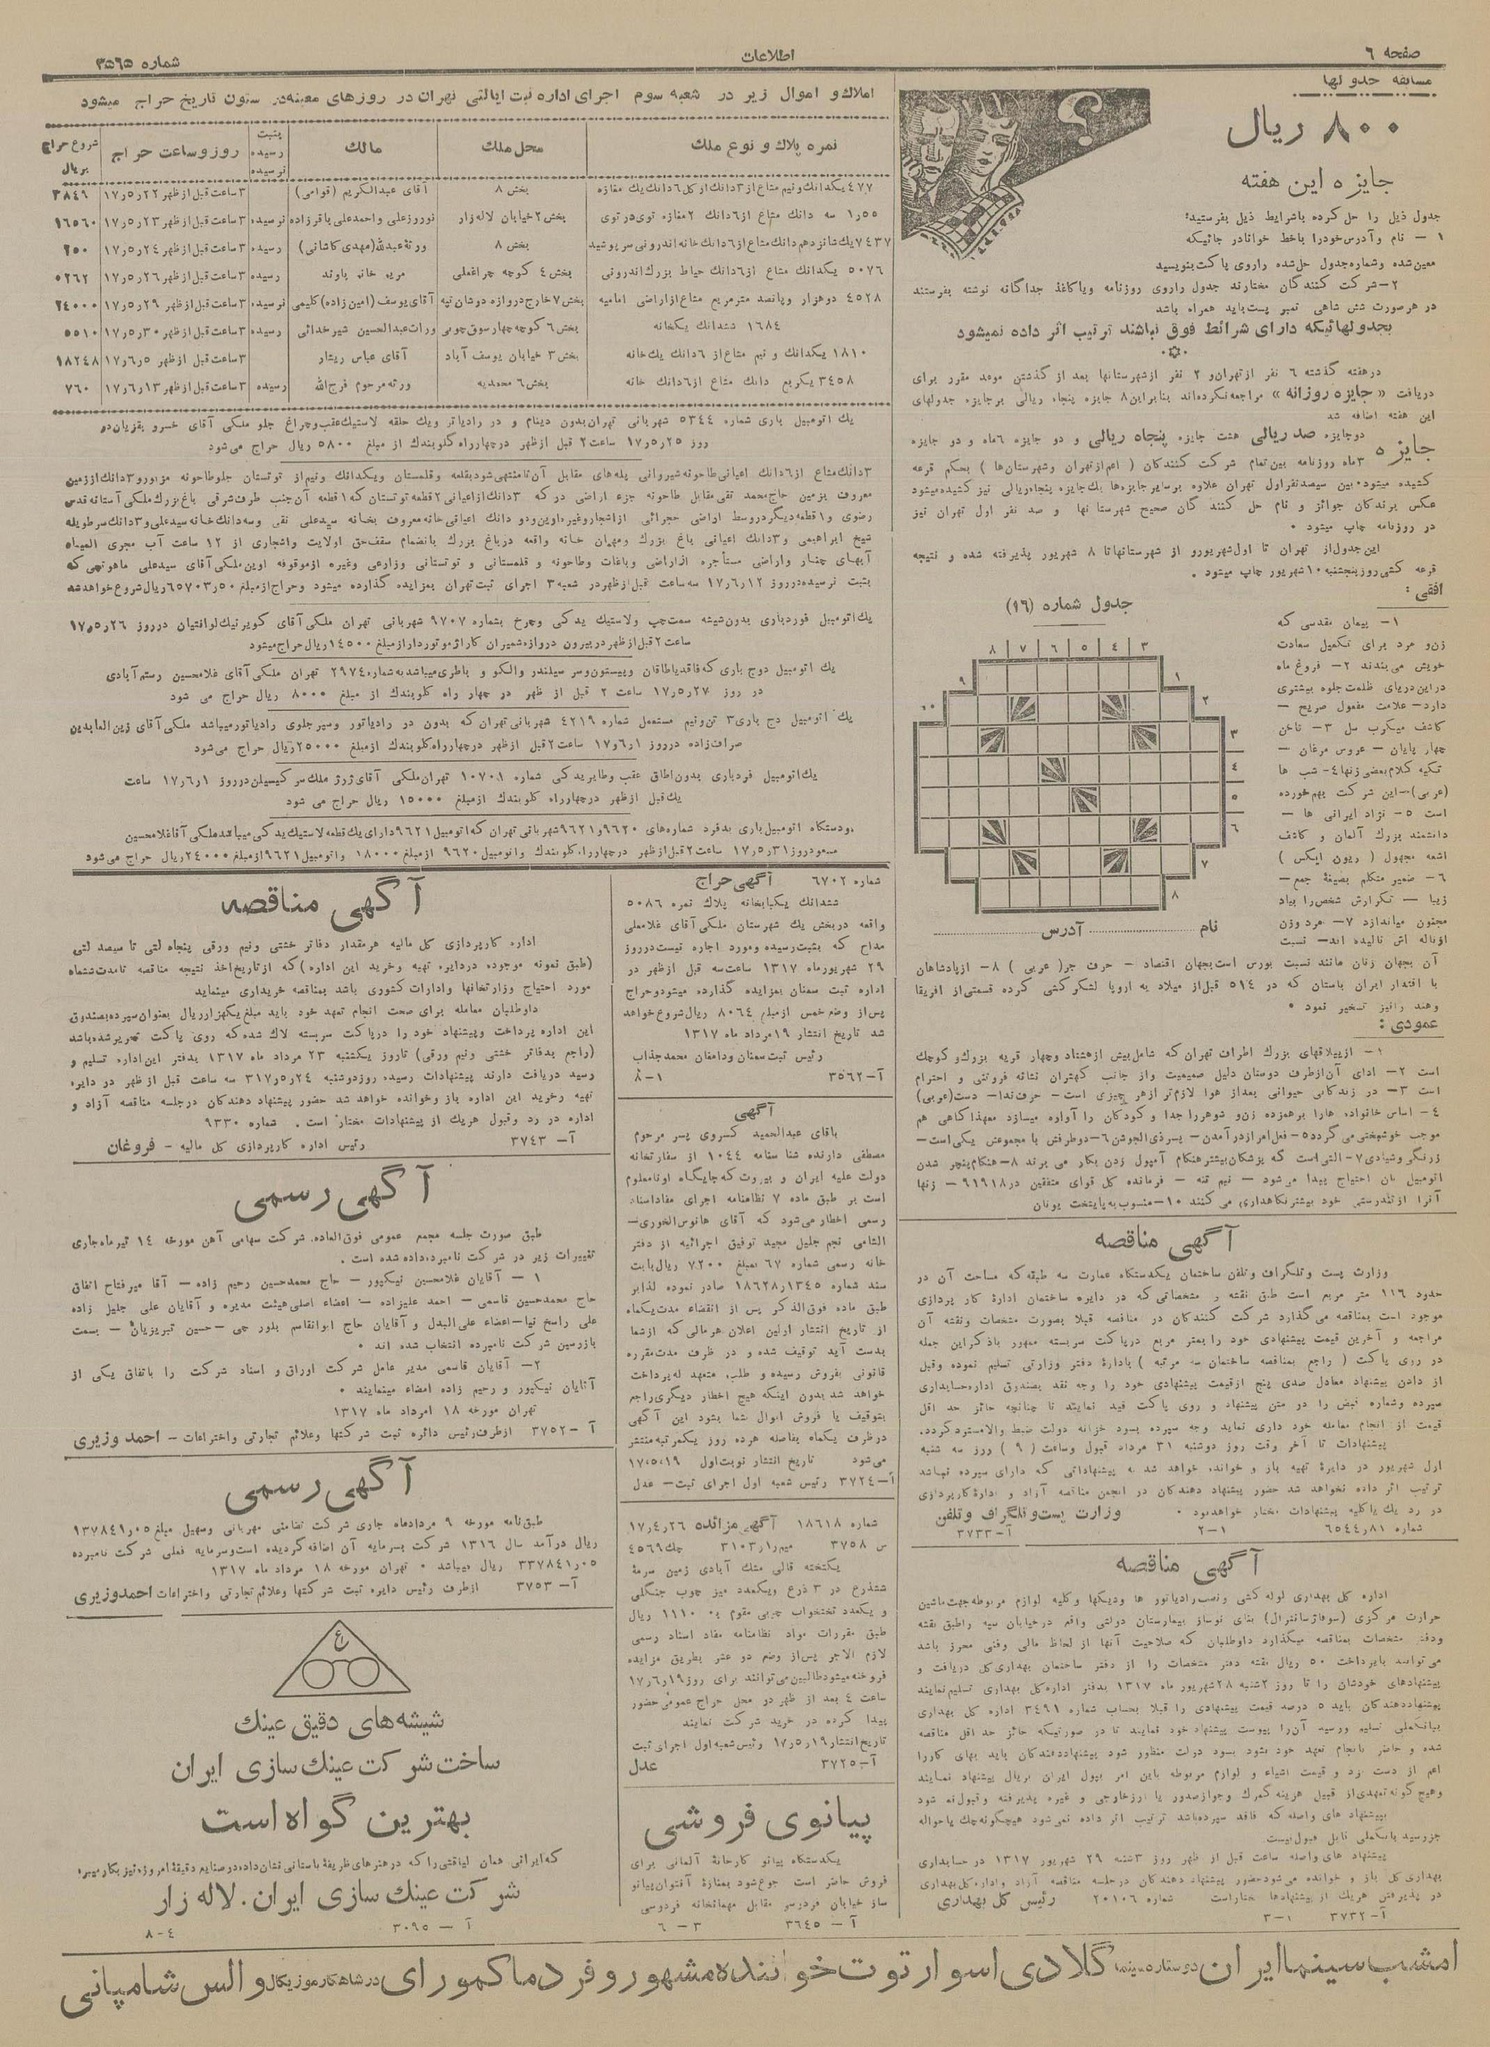 صفحه ۶
اطلاعات
شماره ۳۵۶۵
مسابقه جدولها
۸۰۰ ریال
جایزه این هفته
جدول ذیل را حل کرده باشرایط ذیل بفرستید:
۱ — نام وآدرس خودرا باخط خوانادر جائیکه
معین شده وشماره جدول حل شده راروی پاکت بنویسید
۲— شرکت کنندگان مختارند جدول راروی روزنامه ویاکاغذ جداگانه نوشته بفرستند
در هرصورت شش شاهی تمبر پست باید همراه باشد
بجدولهائیکه دارای شرائط فوق نباشند ترتیب اثر داده نمیشود
درهفته گذشته ۶ نفر ازتهران و ۲ نفر ازشهرستانها بعد از گذشتن موعد مقرر برای
دریافت « جایزه روزانه » مراجعه نکرده اند بنابراین ۸ جایزه پنجاه ریالی برجایزه جدولهای
این هفته اضافه شد
جایزه
دوجایزه صد ریالی هشت جایزه پنجاه ریالی و دو جایزه ۶ماه و دو جایزه
۳ماه روزنامه بین تمام شرکت کنندگان ( اعم از تهران وشهرستان ها ) بحکم قرعه
کشیده میشود. بین سیصد نفر اول تهران علاوه برسایر جایزه ها یک جایزه پنجاه ریالی نیز کشیده میشود
عکس برندگان جوائز و نام حل کنندگان صحیح شهرستانها و صد نفر اول تهران نیز
در روزنامه چاپ میشود .
این جدول از تهران تا اول شهریور و از شهرستانها تا ۸ شهریور پذیرفته شده و نتیجه
قرعه کشی روز پنجشنبه ۱۰ شهریور چاپ میشود .
افقی :
جدول شماره (۱۶)
۱— پیمان مقدسی که
زن و مرد برای تکمیل سعادت
خویش می بندند ۲— فروغ ماه
دراین دریای ظلمت جلوه بیشتری
دارد— علامت مفعول صریح —
کاشف میکرب سل ۳— ناخن
چهار پایان — عروس مرغان —
تکیه کلام بعضی زنها ۴— شب ها
(عربی)— این شرکت بهم خورده
است ۵— نژاد ایرانی ها —
دانشمند بزرگ آلمان و کاشف
اشعه مجهول ( ریون ایکس )
۶— ضمیر متکلم بصیغهٔ جمع —
زیبا — تکرارش شخص را بیاد
مجنون میاندازد ۷— مرد وزن
نام
آدرس
آن بجهان زنان مانند نسبت بورس است بجهان اقتصاد — حرف جر ( عربی ) ۸— از پادشاهان
با اقتدار ایران باستان که در ۵۱۴ قبل از میلاد به اروپا لشکرکشی کرده قسمتی از افریقا
وهند رانیز تسخیر نمود .
عمودی :
۱— از ییلاقهای بزرگ اطراف تهران که شامل بیش از هشتاد وچهار قریه بزرگ و کوچک
است ۲— ادای آن از طرف دوستان دلیل صمیمیت واز جانب کهتران نشانه فروتنی و احترام
است ۳— در زندگانی حیوانی بعد از هوا لازم تر از هر چیزی است — حرف ندا — دست (عربی)
۴— اساس خانواده هارا برهم زده زن و شوهر را جدا و کودکان را آواره میسازد معهذا گاهی هم
موجب خوشبختی می گردد ۵— فعل امر از در آمدن — پسر ذی الجوشن ۶— دو طرفش با مجموعش یکی است —
زرنگ و شیادی ۷— التی است که پزشکان بیشتر هنگام آمپول زدن بکار می برند ۸— هنگام پنچر شدن
اتومبیل بآن احتیاج پیدا می شود — نیم تنه — فرمانده کل قوای متفقین در ۱۹۱۸ ۹— زنها
آنرا از تندرستی خود بیشتر نگاهداری می کنند ۱۰— منسوب به پایتخت یونان
آگهی مناقصه
وزارت پست و تلگراف و تلفن ساختمان یکدستگاه عمارت سه طبقه که مساحت آن در
حدود ۱۱۶ متر مربع است طبق نقشه و مشخصاتی که در دایره ساختمان ادارهٔ کار پردازی
موجود است بمناقصه می گذارد شرکت کنندگان در مناقصه قبلا بصورت مشخصات ونقشه آن
مراجعه و آخرین قیمت پیشنهادی خود را بمتر مربع درپاکت سربسته ممهور باذکر این جمله
در روی پاکت ( راجع بمناقصه ساختمان سه مرتبه ) بادارهٔ دفتر وزارتی تسلیم نموده وقبل
از دادن پیشنهاد معادل صدی پنج از قیمت پیشنهادی خود را وجه نقد بصندوق اداره حسابداری
سپرده وشماره قبض را در متن پیشنهاد و روی پاکت قید نمایند تا چنانچه حائز حد اقل
قیمت از انجام معامله خود داری نماید وجه سپرده بسود خزانه دولت ضبط والامسترد گردد.
پیشنهادات تا آخر وقت روز دوشنبه ۳۱ مرداد قبول وساعت ( ۹ ) روز سه شنبه
اول شهریور در دایرهٔ تهیه باز و خوانده خواهد شد به پیشنهاداتی که دارای سپرده نباشد
ترتیب اثر داده نخواهد شد حضور پیشنهاد دهندگان در انجمن مناقصه آزاد و ادارهٔ کارپردازی
در رد یک یا کلیه پیشنهادات مختار خواهد بود . وزارت پست و تلگراف و تلفن
شماره ۶۵۴۴ر۸۱ ۲—۱ آ—۳۷۳۳
آگهی مناقصه
اداره کل بهداری لوله کشی ونصب رادیاتور ها ودیگها وکلیه لوازم مربوطه جهت ماشین
حرارت مرکزی (سوفاژ سانترال) بنای نوساز بیمارستان دولتی واقع در خیابان سپه راطبق نقشه
ودفتر مشخصات بمناقصه میگذارد داوطلبان که صلاحیت آنها از لحاظ مالی وفنی محرز باشد
می توانند باپرداخت ۵۰ ریال نقشه دفتر مشخصات را از دفتر ساختمان بهداری کل دریافت و
پیشنهادهای خودشان را تا روز ۲شنبه ۲۸ شهریور ماه ۱۳۱۷ بدفتر اداره کل بهداری تسلیم نمایند
پیشنهاددهندگان باید ۵ درصد قیمت پیشنهادی را قبلا بحساب شماره ۳۴۹۱ اداره کل بهداری
ببانک ملی تسلیم ورسید آن را پیوست پیشنهاد خود نمایند تا در صورتیکه حائز حد اقل مناقصه
شده و حاضر بانجام تعهد خود نشود بسود دولت منظور شود پیشنهاددهندگان باید بهای کاررا
اعم از دست مزد و قیمت اشیاء و لوازم مربوطه باین امر بپول ایران بریال پیشنهاد نمایند
وهیچگونه تعهدی از قبیل هزینه گمرک وجواز صدور یا ارز خارجی و غیره پذیرفته وقبول نه شود
بپیشنهاد های واصله که فاقد سپرده باشد ترتیب اثر داده نمی شود هیچگونه چک یاحواله
جز رسید بانک ملی قابل قبول نیست
پیشنهاد های واصله ساعت قبل از ظهر روز ۳شنبه ۲۹ شهریور ۱۳۱۷ در حسابداری
بهداری کل باز و خوانده می شود حضور پیشنهاد دهندگان در جلسه مناقصه آزاد واداره کل بهداری
در پذیرفتن هریک از پیشنهادها مختار است شماره ۲۰۱۰۶ رئیس کل بهداری
آ—۳۷۳۲ ۳—۱
املاک و اموال زیر در شعبه سوم اجرای اداره ثبت ایالتی تهران در روزهای معینه در ستون تاریخ حراج میشود
نمره پلاک و نوع ملک | محل ملک | مالک | بثبت رسیده نرسیده | روز و ساعت حراج | شروع حراج بریال
۴۷۷ یکدانک ونیم مشاع از ۳دانک از کل ۶دانک یک مغازه | بخش ۸ | آقای عبدالکریم (قوامی) | ۳ساعت قبل از ظهر ۲۲ر۵ر۱۷ | ۳۸۴۹
۱ر۵۵ سه دانک مشاع از ۶دانک ۲مغازه توی در توی | بخش ۲ خیابان لاله زار | نوروز علی و احمد علی باقرزاده | نرسیده | ۳ساعت قبل از ظهر ۲۳ر۵ر۱۷ | ۱۶۵۶۰
۷۴۳۷ یک شانزدهم دانک مشاع از ۶دانک خانه اندرونی سرپوشید | بخش ۸ | ورثهٔ عبدالله (مهدی کاشانی) | رسیده | ۳ساعت قبل از ظهر ۲۴ر۵ر۱۷ | ۶۵۰
۵۰۷۶ یکدانک مشاع از ۶دانک حیاط بزرگ اندرونی | بخش ۴ کوچه چراغعلی | رسیده | ۳ساعت قبل از ظهر ۲۶ر۵ر۱۷ | ۵۲۶۲
۴۵۲۸ دوهزار وپانصد مترمربع مشاع از اراضی امامیه | بخش ۷ خارج دروازه دوشان تپه | آقای یوسف (امین زاده) کلیمی | نرسیده | ۳ساعت قبل از ظهر ۲۹ر۵ر۱۷ | ۲۴۰۰۰
۱۶۸۴ ششدانک یکخانه | بخش ۶ کوچه چهارسوق چوبی | وراث عبدالحسین شیرخدائی | رسیده | ۳ساعت قبل از ظهر ۳۰ر۵ر۱۷ | ۵۵۱۰
۱۸۱۰ یکدانک و نیم مشاع از ۶دانک یک خانه | بخش ۳ خیابان یوسف آباد | آقای عباس | ۳ساعت قبل از ظهر ۵ر۶ر۱۷ | ۱۸۲۴۸
۳۴۵۸ یکربع دانک مشاع از ۶دانک خانه | بخش ۶ محمدیه | ورثه مرحوم فرج الله | رسیده | ۳ساعت قبل از ظهر ۱۳ر۶ر۱۷ | ۷۶۰
یک اتومبیل باری شماره ۵۳۴۴ شهربانی تهران بدون دینام و در رادیاتر ویک حلقه لاستیک عقب وچراغ جلو ملکی آقای خسرو
روز ۲۵ر۵ر۱۷ ساعت ۲ قبل از ظهر در چهارراه گلوبندک از مبلغ ۵۸۰۰ ریال حراج می شود
۳دانک مشاع از ۶دانک اعیانی طاحونه شیروانی پله های مقابل آن تا منتهی شود بقلعه وقلمستان ویکدانک ونیم از توتستان جلو طاحونه مزبور و ۳دانک از زمین
معروف بزمین حاج محمد تقی مقابل طاحونه جزء اراضی در که ۳دانک از اعیانی ۲قطعه توتستان که ۱قطعه آن جنب طرف شرقی باغ بزرگ ملکی آستانه قدس
رضوی و ۱قطعه دیگر در وسط اراضی از اشجار وغیره اوین و دو دانک اعیانی خانه معروف بخانه سید علی نقی وسه دانک خانه سید علی و ۳دانک سر طویله
شیخ ابراهیمی و ۳دانک اعیانی باغ بزرگ ومهران خانه واقعه در باغ بزرگ بانضمام سقف حق اولایت واشجاری از ۱۲ ساعت آب مجری المیاه
آبهای چنار واراضی مستأجره از اراضی وباغات وطاحونه و قلمستانی و توتستانی وزارعی وغیره از موقوفه اوین ملکی آقای سیدعلی که
بثبت نرسیده در روز ۱۲ر۶ر۱۷ سه ساعت قبل از ظهر در شعبه ۳ اجرای ثبت تهران بمزایده گذارده میشود وحراج از مبلغ ۶۵۷۰۳ر۵۰ ریال شروع خواهد شد
یک اتومبیل فورد باری بدون شیشه سمت چپ ولاستیک یدکی وچرخ بشماره ۹۷۰۷ شهربانی تهران ملکی آقای در روز ۲۶ر۵ر۱۷
ساعت ۲ قبل از ظهر در بیرون دروازه شمیران گاراژ موتوردار از مبلغ ۱۴۵۰۰ ریال حراج میشود
یک اتومبیل دوج باری که فاقد یاطاقان وپیستون وسر سیلندر والکو و باطری میباشد بشماره ۲۹۷۴ تهران ملکی آقای غلامحسین رستم آبادی
در روز ۲۷ر۵ر۱۷ ساعت ۲ قبل از ظهر در چهار راه گلوبندک از مبلغ ۸۰۰۰ ریال حراج می شود
یک اتومبیل دج باری ۳ تن ونیم مستعمل شماره ۴۲۱۹ شهربانی تهران که بدون در رادیاتور وسپر جلوی رادیاتور میباشد ملکی آقای زین العابدین
صراف زاده در روز ۱ر۶ر۱۷ ساعت ۲ قبل از ظهر در چهارراه گلوبندک از مبلغ ۲۵۰۰۰ ریال حراج می شود
یک اتومبیل فرد باری بدون اطاق عقب وطایر یدکی شماره ۱۰۷۰۱ تهران ملکی آقای ژرژ ملک سرکیسیان در روز ۱ر۶ر۱۷ ساعت
یک قبل از ظهر در چهارراه گلوبندک از مبلغ ۱۵۰۰۰ ریال حراج می شود
دودستگاه اتومبیل باری بدفرد شماره های ۹۶۲۰ و ۹۶۲۱ شهربانی تهران که اتومبیل ۹۶۲۱ دارای یک قطعه لاستیک یدکی میباشد ملکی آقا غلامحسین
مسعود روز ۳۱ر۵ر۱۷ ساعت ۲ قبل از ظهر در چهارراه گلوبندک واتومبیل ۹۶۲۰ از مبلغ ۱۸۰۰۰ واتومبیل ۹۶۲۱ از مبلغ ۲۴۰۰۰ ریال حراج می شود
شماره ۶۷۰۲ آگهی حراج
ششدانک یکبابخانه پلاک نمره ۵۰۸۶
واقعه در بخش یک شهرستان ملکی آقای غلامعلی
مداح که بثبت رسیده ومورد اجاره نیست در روز
۲۹ شهریور ماه ۱۳۱۷ ساعت سه قبل از ظهر در
اداره ثبت سمنان بمزایده گذارده میشود وحراج
پس از وضع خمس از مبلغ ۸۰۶۴ ریال شروع خواهد
شد تاریخ انتشار ۱۹ مرداد ماه ۱۳۱۷
رئیس ثبت سمنان ودامغان محمد جذاب
آ—۳۵۶۲ ۸—۱
آگهی
باقای عبدالحمید کسروی پسر مرحوم
مصطفی دارنده شناسنامه ۱۰۴۴ از سفارتخانه
دولت علیه ایران و بیروت که جایگاه اونامعلوم
است بر طبق ماده ۷ نظامنامه اجرای مفاد اسناد
رسمی اخطار می شود که آقای هانوس الخوری —
الشامی نجم جلیل مجید توفیق اجرائیه از دفتر
خانه رسمی شماره ۶۷ بمبلغ ۷۲۰۰ ریال بابت
سند شماره ۱۳۴۵ر۱۸۶۲۸ صادر نموده لذا بر
طبق ماده فوق الذکر پس از انقضاء مدت یکماه
از تاریخ انتشار اولین اعلان هر مالی که از شما
بدست آید توقیف شده و در ظرف مدت مقرره
قانونی بفروش رسیده و طلب متعهد له پرداخت
خواهد شد بدون اینکه هیچ اخطار دیگری راجع
بتوقیف یا فروش اموال شما بشود این آگهی
در ظرف یکماه بفاصله هر ده روز یکمرتبه منتشر
می شود تاریخ انتشار نوبت اول ۱۷٫۵٫۱۹
آ—۳۷۲۴ رئیس شعبه اول اجرای ثبت — عدل
شماره ۱۸۶۱۸ آگهی مزائده ۲۶ر۴ر۱۷
س ۳۷۵۸ میم ۱ر۳۱۰۳ چک ۴۵۶۹
یکتخته قالی مشک آبادی زمین سرمهٔ
ششذرع در ۳ ذرع ویکعدد میز چوب جنگلی
و یکعدد تختخواب چوبی مقوم به ۱۱۱۰ ریال
طبق مقررات مواد نظامنامه مفاد اسناد رسمی
لازم الاجر پس از وضع دو عشر بطریق مزایده
فروخته میشود طالبین می توانند برای روز ۱۹ر۶ر۱۷
ساعت ۴ بعد از ظهر در محل حراج عمومی حضور
پیدا کرده در خرید شرکت نمایند
تاریخ انتشار ۱۹ر۵ر۱۷ رئیس شعبه اول اجرای ثبت
آ—۳۷۲۵ عدل
پیانوی فروشی
یکدستگاه پیانو کارخانهٔ آلمانی برای
فروش حاضر است رجوع شود بمغازهٔ آفتوان پیانو
ساز خیابان فردوسی مقابل مهمانخانه فردوسی
آ — ۳۶۴۵ ۳ — ۶
آگهی مناقصه
اداره کارپردازی کل مالیه هر مقدار دفاتر خشتی ونیم ورقی پنجاه لتی تا سیصد لتی
(طبق نمونه موجوده در دایره تهیه وخرید این اداره) که از تاریخ اخذ نتیجه مناقصه تا مدت ششماه
مورد احتیاج وزارتخانها وادارات کشوری باشد بمناقصه خریداری مینماید
داوطلبان معامله برای صحت انجام تعهد خود باید مبلغ یکهزار ریال بعنوان سپرده بصندوق
این اداره پرداخت وپیشنهاد خود را درپاکت سربسته لاک شده که روی پاکت تحریر شده باشد
(راجع بدفاتر خشتی ونیم ورقی) تاروز یکشنبه ۲۳ مرداد ماه ۱۳۱۷ بدفتر این اداره تسلیم و
رسید دریافت دارند پیشنهادات رسیده روز دوشنبه ۲۴ر۵ر۳۱۷ سه ساعت قبل از ظهر در دایره
تهیه وخرید این اداره باز وخوانده خواهد شد حضور پیشنهاد دهندگان در جلسه مناقصه آزاد و
اداره در رد وقبول هریک از پیشنهادات مختار است . شماره ۹۳۳۰
آ—۳۷۴۳ رئیس اداره کارپردازی کل مالیه — فروغان
آگهی رسمی
طبق صورت جلسه مجمع عمومی فوق العاده شرکت سهامی آهن مورخه ۱۴ تیر ماه جاری
تغییرات زیر در شرکت نامبرده داده شده است .
۱ — آقایان غلامحسین نیکپور — حاج محمدحسین رحیم زاده — آقا میر فتاح اتفاق
حاج محمدحسین قاسمی — احمد علیزاده — اعضاء اصلی هیئت مدیره و آقایان علی جلیل زاده
علی راسخ نیا — اعضاء علی البدل و آقایان حاج ابوالقاسم بلورچی — حسین تبریزیان — بسمت
بازرسین شرکت نامبرده انتخاب شده اند .
۲— آقایان قاسمی مدیر عامل شرکت اوراق و اسناد شرکت را باتفاق یکی از
آقایان نیکپور و رحیم زاده امضاء مینمایند .
تهران مورخه ۱۸ امرداد ماه ۱۳۱۷
آ—۳۷۵۲ از طرف رئیس دائره ثبت شرکتها وعلائم تجارتی واختراعات — احمد وزیری
آگهی رسمی
طبق نامه مورخه ۹ مرداد ماه جاری شرکت تضامنی مهربانی وسهیل مبلغ ۰۵ر۱۳۷۸۴۱
ریال درآمد سال ۱۳۱۶ شرکت بسرمایه آن اضافه گردیده است وسرمایه فعلی شرکت نامبرده
۰۵ر۳۳۷۸۴۱ ریال میباشد . تهران مورخه ۱۸ مرداد ماه ۱۳۱۷
آ—۳۷۵۳ از طرف رئیس دایره ثبت شرکتها وعلائم تجارتی واختراعات احمد وزیری
ع
شیشه های دقیق عینک
ساخت شرکت عینک سازی ایران
بهترین گواه است
که ایرانی همان لیاقتی را که در هنرهای ظریفهٔ باستانی نشان داده در صنایع دقیقهٔ امروزه نیز بکار میبرد
شرکت عینک سازی ایران. لاله زار
آ — ۳۰۹۵ ۸—۴
امشب سینما ایران دو ستاره سینما گلادی اسوارتوت خواننده مشهور و فرد ماکمورای در شاهکار موزیکال والس شامپانی